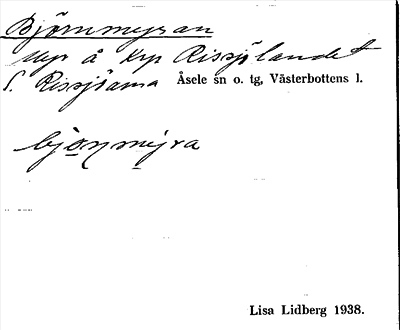 Björnmyran
myr å krp Rissjölandet
S. Rissjöarna Åsele sn o. tg, Västerbottens l.
bjo̲ŋmy̲ra
Lisa Lidberg 1938.